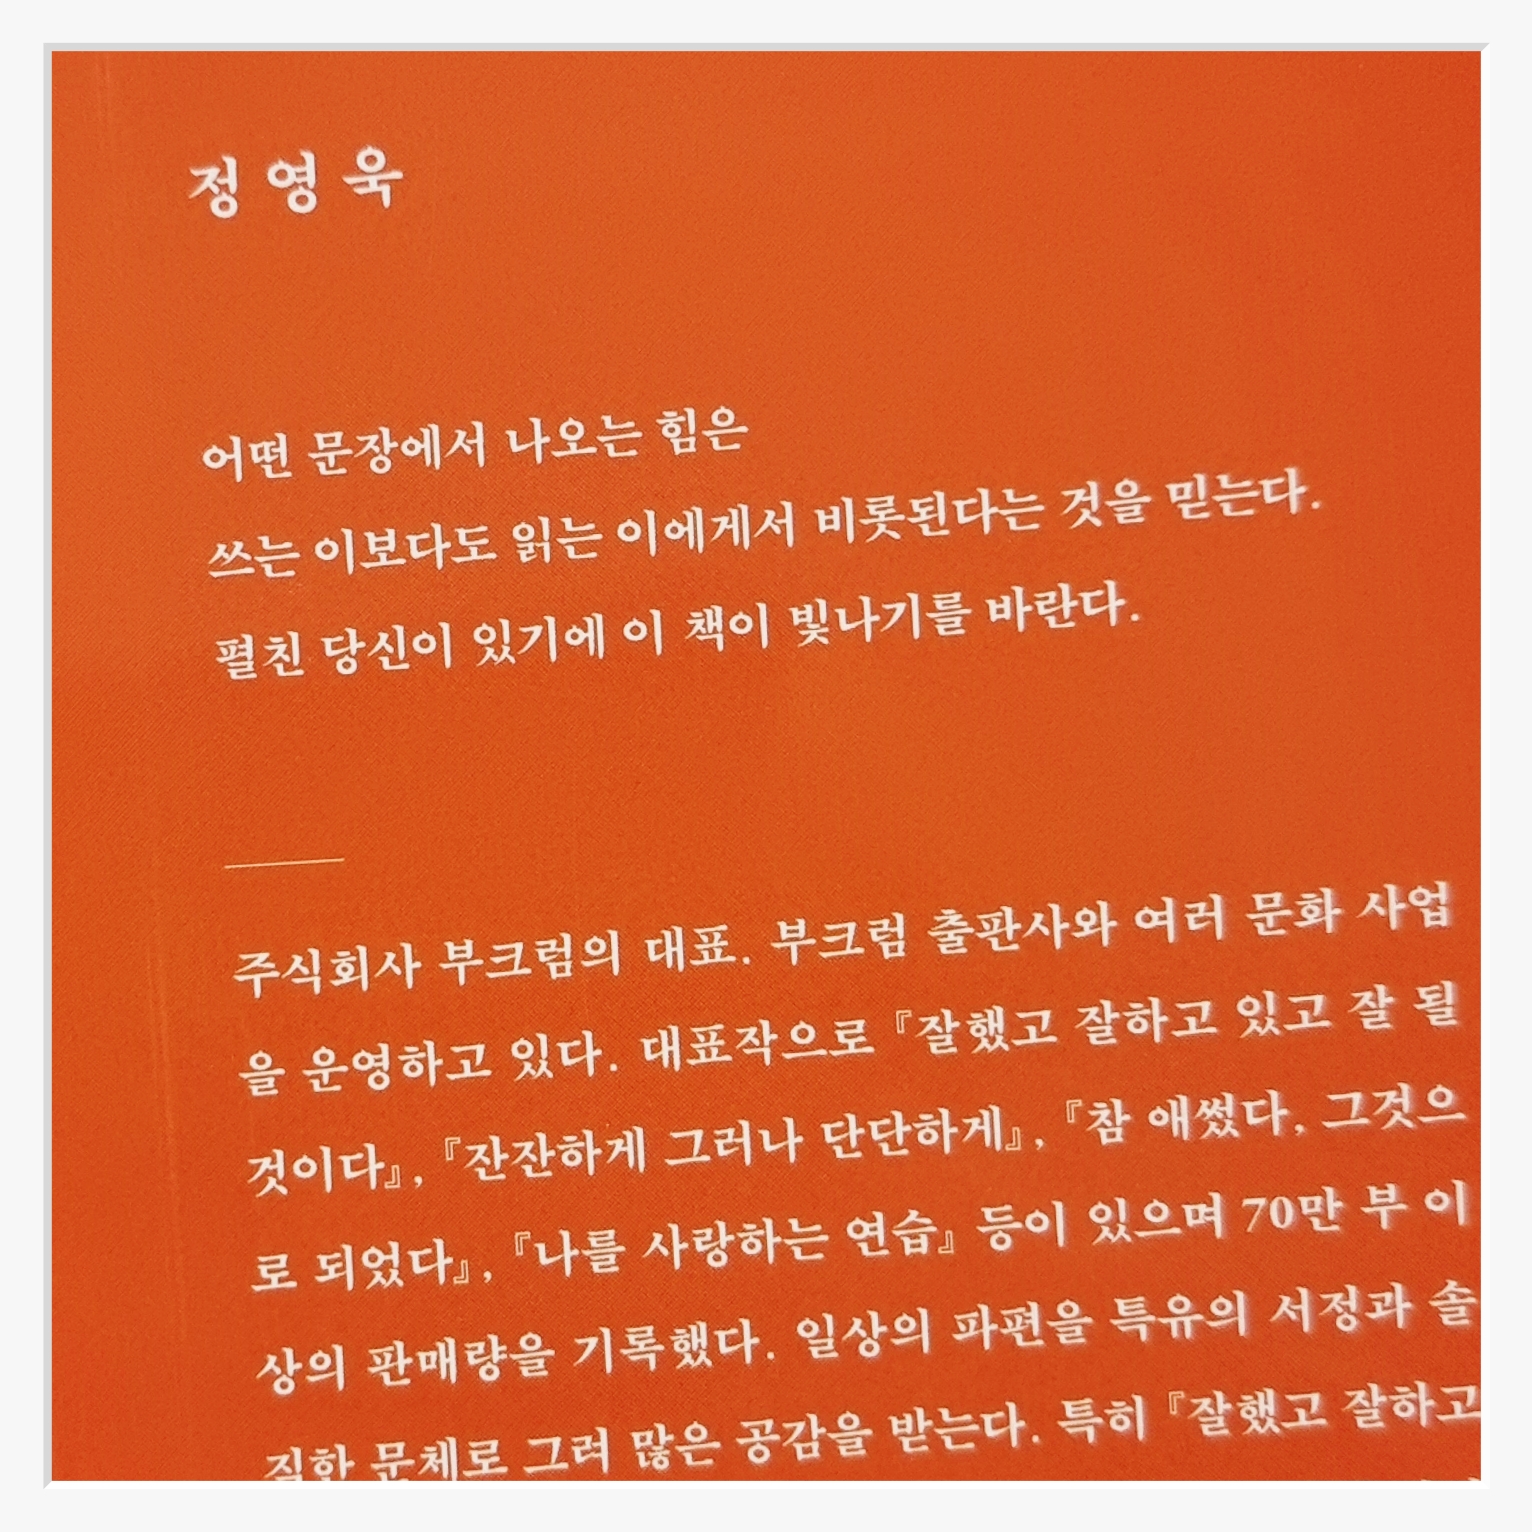 정영욱
어떤 문장에서 나오는 힘은
쓰는 이보다도 읽는 이에게서 비롯된다는 것을 믿는다.
펼친 당신이 있기에 이 책이 빛나기를 바란다.
주식회사 부크럼의 대표. 부크럼 출판사와 여러 문화 사업
을 운영하고 있다. 대표작으로 『잘했고 잘하고 있고 잘 될
것이다』, 『잔잔하게 그러나 단단하게』, 『참 애썼다, 그것으
로 되었다』, 『나를 사랑하는 연습』 등이 있으며 70만 부 이
상의 판매량을 기록했다. 일상의 파편을 특유의 서정과 솔
직한 문체로 그려 많은 공감을 받는다. 특히 『잘했고 잘하고